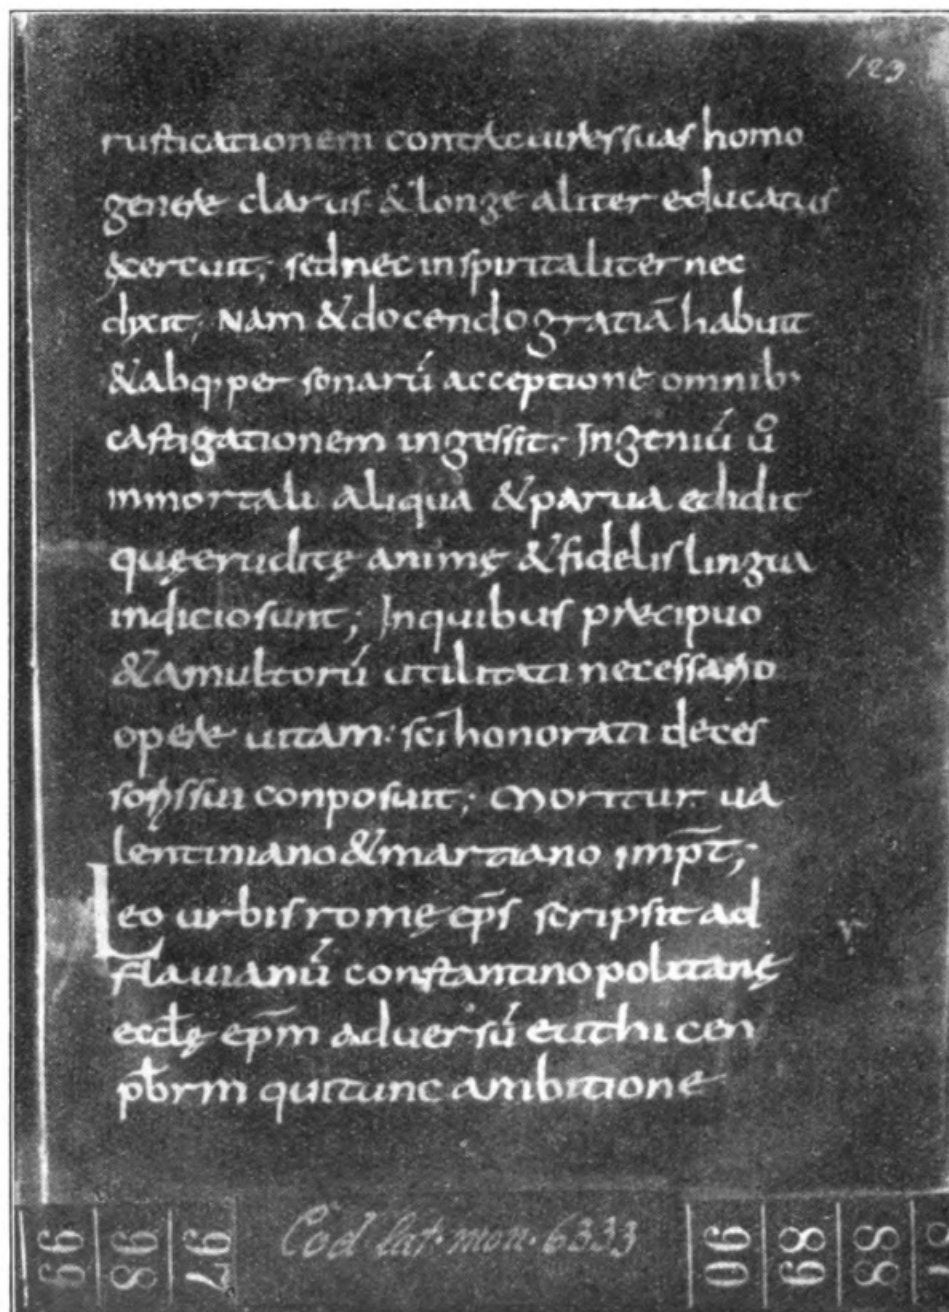 123
rusticationem contra uires suas homo
genere clarus & longe aliter educatus
exercuit; sed nec inspiritaliter nec
dixit; Nam & docendo gratiā habuit
& absq; per sonarū acceptione omnib;
castigationem ingessit; Ingeniū u̇o
inmortali aliqua & parua edidit
quę eruditę animę & fidelis lingua
indicio sunt; In quibus precipuo
& a multorū utilitati necessario
opere uitam sc̄i honorati deces
soris sui conposuit; Moritur ua
lentiniano & martiano imp̄t;
Leo urbis romę ep̄s scripsit ad
flauianū constantinopolitanę
eccłę ep̄m aduersū euthicen
pƀrm qui tunc ambitione
Cod lat. mon. 6333
99
98
97
90
89
88